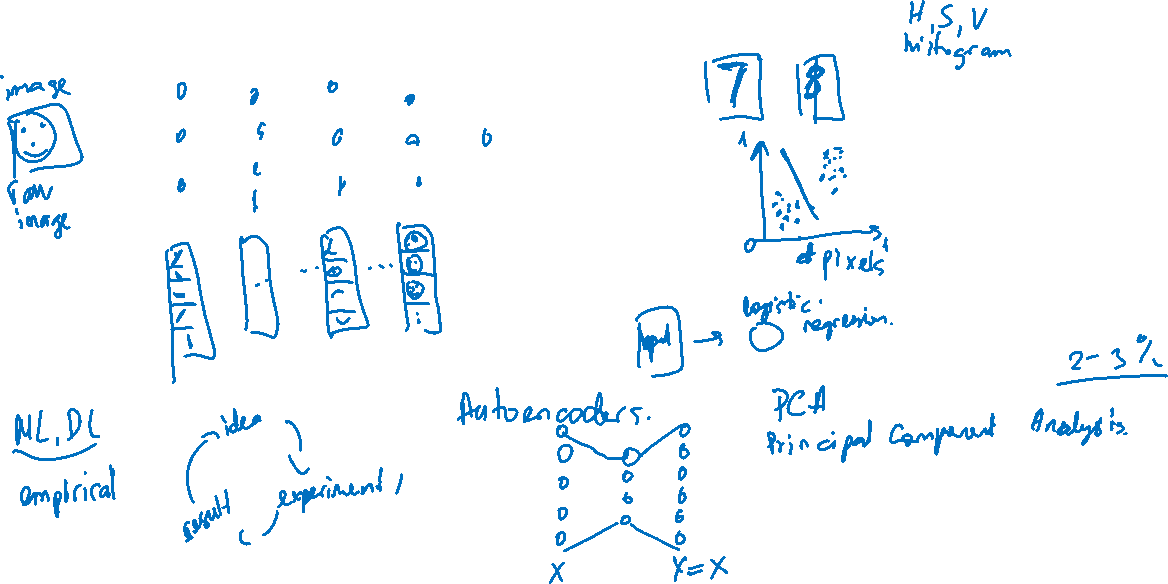 H, S, V
histogram
image
raw
image
7 8
1
0
# pixels
1
logistic
regression.
Input
2-3%
ML, DL
empirical
idea
experiment
result
Autoencoders.
X
Y=X
PCA
Principal Component Analysis.